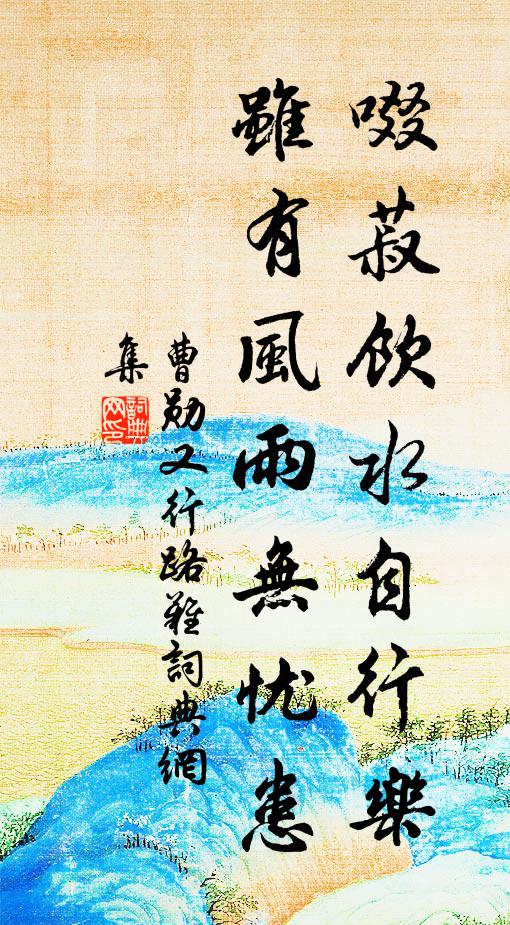 啜菽飲水自行樂
雖有風雨無憂患
曹勛又行路難詞典網
集
詞典
网印